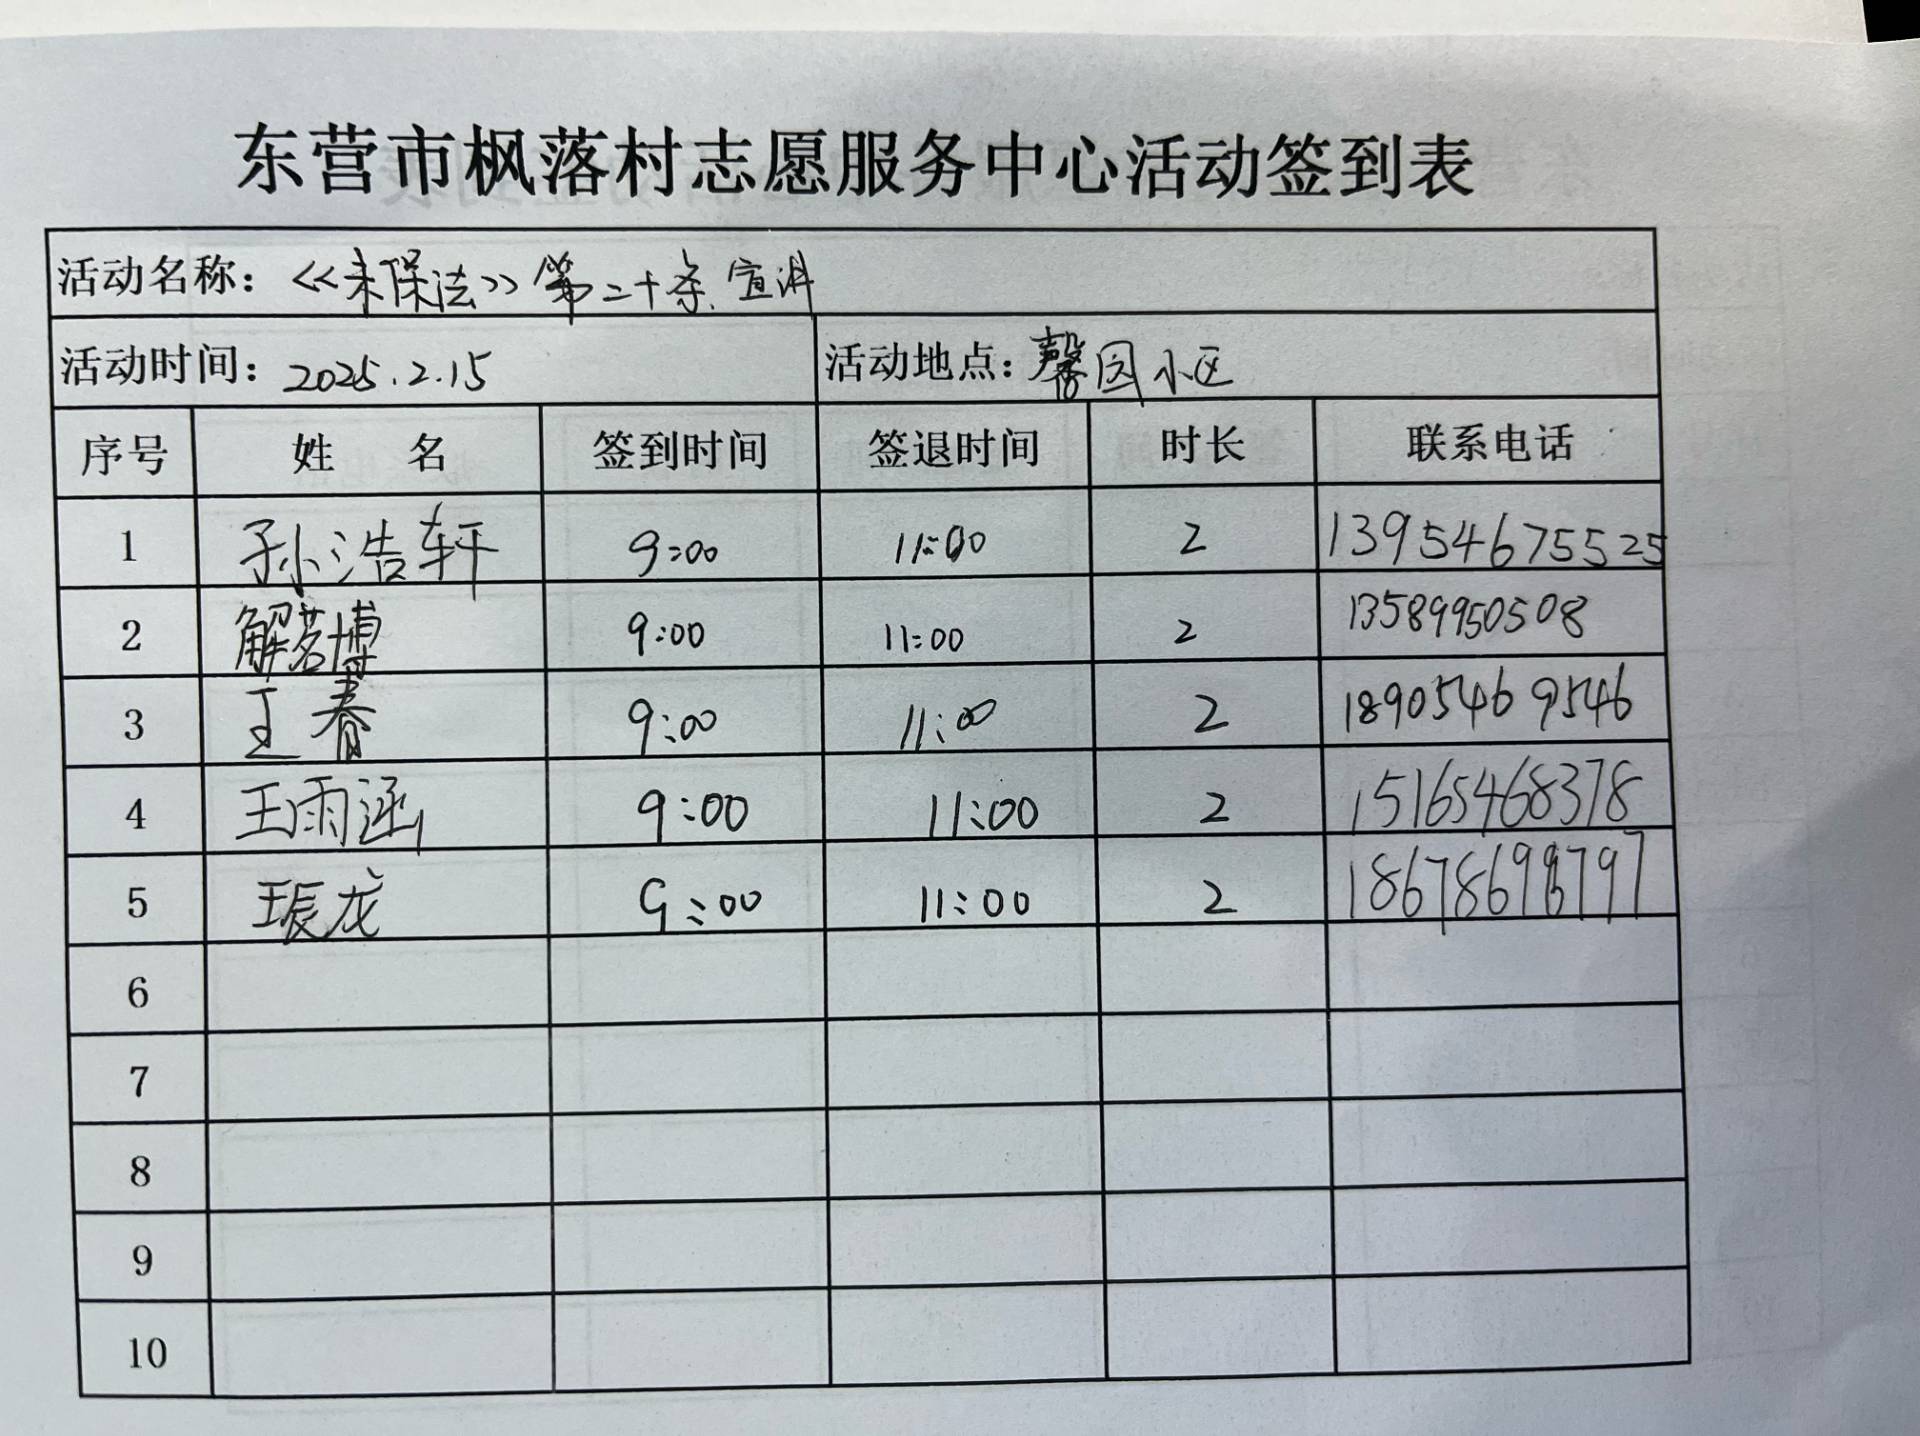 东营市枫落村志愿服务中心活动签到表
活动名称：《未保法》第二十条宣讲
活动时间：2025.2.15 活动地点：馨园小区
序号 姓 名 签到时间 签退时间 时长 联系电话
1 孙浩轩 9:00 11:00 2 13954675525
2 解茗博 9:00 11:00 2 13589950508
3 王春 9:00 11:00 2 18905469546
4 王雨涵 9:00 11:00 2 15165468378
5 王辰龙 9:00 11:00 2
6
7
8
9
10